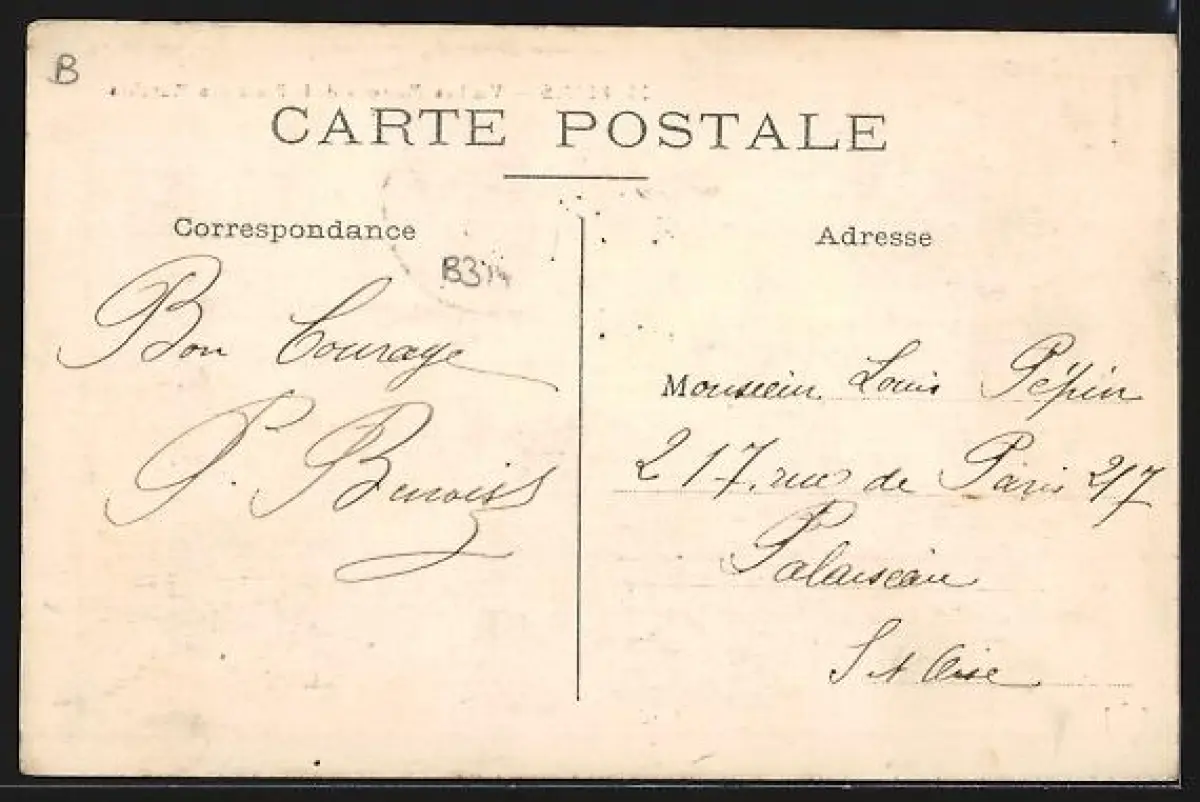 B
CARTE POSTALE
Correspondance
Adresse
Bon Courage
P. Benoist
Monsieur Louis Pépin
217, rue de Paris 217
Palaiseau
S et Oise